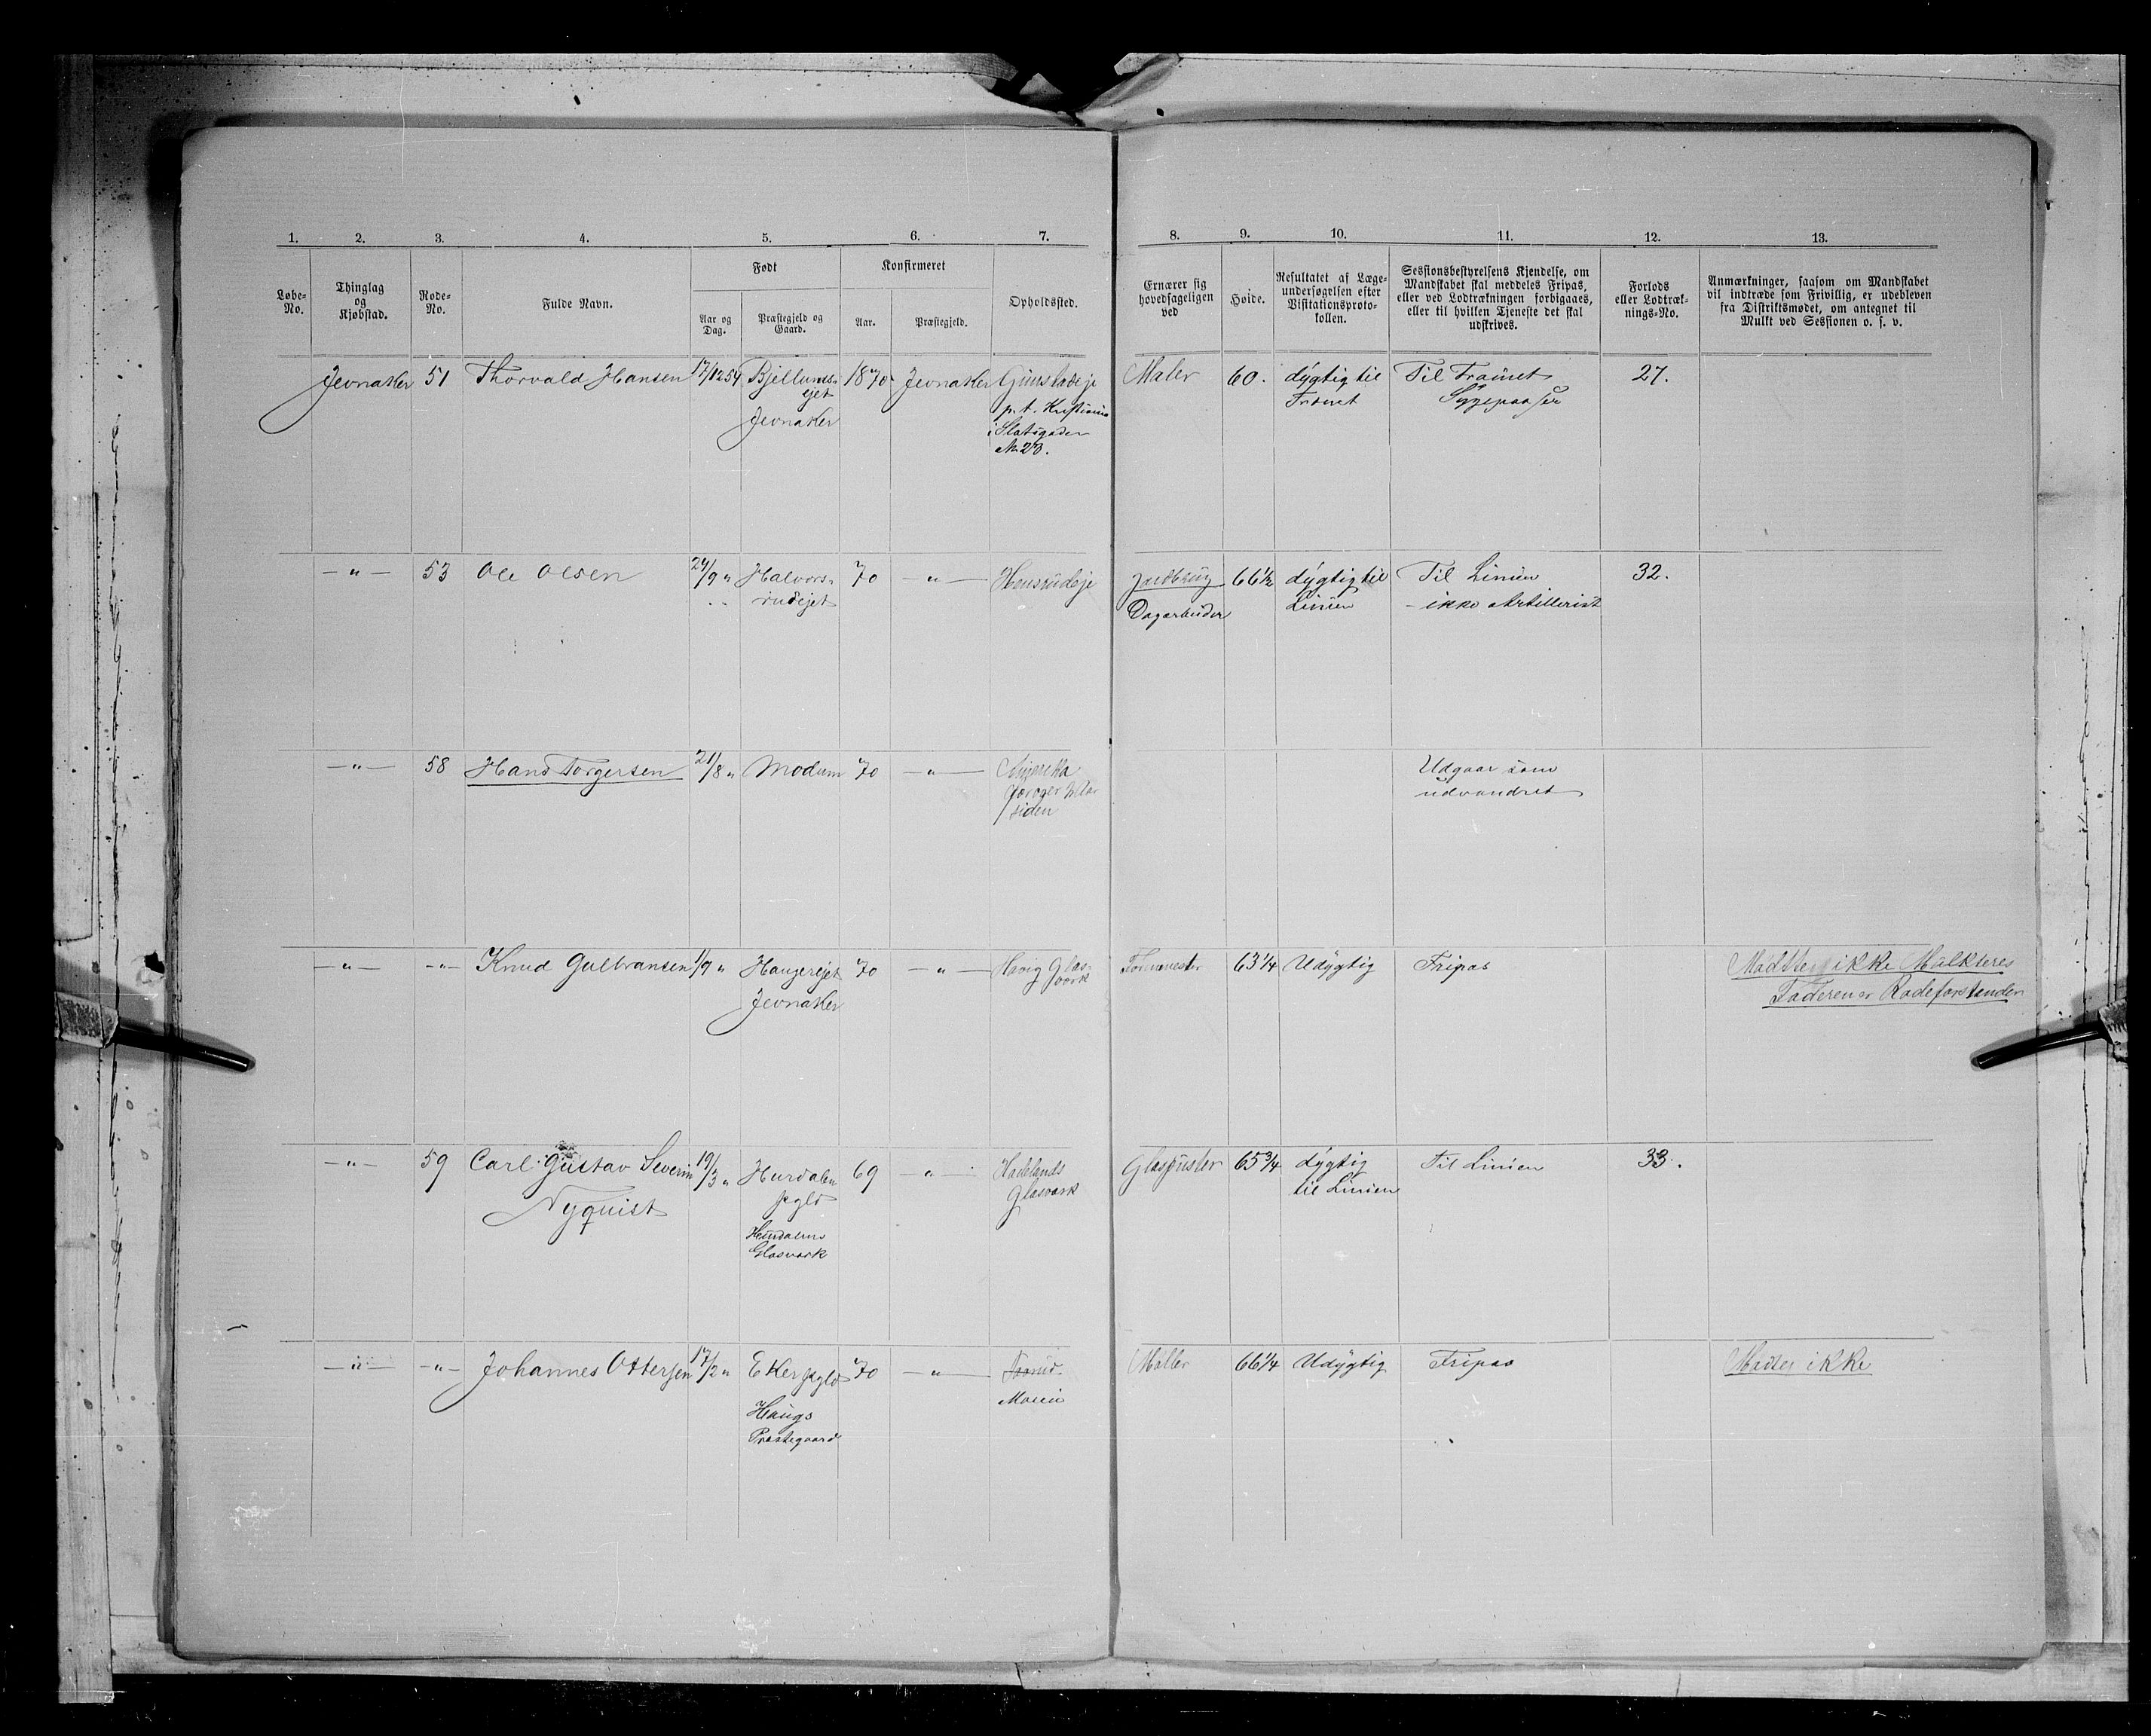 1. 2. 3. 4. 5. 6. 7. 8. 9. 10. 11. 12. 13.
Løbe-
No.
Thinglag
og
Kjøbstad.
Rode-
No.
Fulde Navn.
Født
Aar og
Dag.
Præstegjeld og
Gaard.
Konfirmeret
Aar.
Præstegjeld.
Opholdssted.
Ernærer sig
hovedsageligen
ved
Høide.
Resultatet af Læge-
undersøgelsen efter
Visitationsproto-
kollen.
Sessionsbestyrelsens Kjendelse, om
Mandskabet skal meddeles Fripas,
eller ved Lodtrækningen forbigaaes,
eller til hvilken Tjeneste det skal
udskrives.
Forlods
eller Lodtræk-
nings-No.
Anmærkninger, saasom om Mandskabet
vil indtræde som Frivillig, er udebleven
fra Distriktsmødet, om antegnet til
Mulkt ved Sessionen o. s. v.
Jevnaker 51 Thorvald Hansen 17/12 54 Bjellums-
ejet
Jevnaker
1870 Jevnaker
p. t. Kristiania
i Slotsgaden
No 23.
Maler 60. dygtig til
Trainet
Til Trainet
Sygepasser
27.
— " — 53 Ole Olsen 24/9 " Halvors-
rudejet
70 — " — Hensrudeje
Jordbrug
Dagarbeider
66 1/2 dygtig til
Linien
Til Linien
- ikke Artillerist
32.
— " — 58 Hans Torgersen 21/8 " Modum 70 — " — Amerika
siden
Udgaar som
udvandret
— " — - " - Knud Gulbransen 1/9 " Haugerejet
Jevnaker
70 — " — Høvig Glas-
værk
63 1/4 Udygtig Fripas
Mødtte ikke Mulkteres
Faderen er Rodeforstander
— " — 59 Carl Gustav Severin
Nyquist
19/3 " Hurdalen
pgld
Hurdalens
Glasværk
69 — " — Hadelands
Glasværk
Glaspuster 65 3/4 dygtig
til Linien
Til Linien
33.
— " — - " - Johannes Ottersen 17/2 " Eker pgld
Haugs
Præstegaard
70 — " —
Mosein
Møller 66 1/4 Udygtig Fripas
Mødter ikke